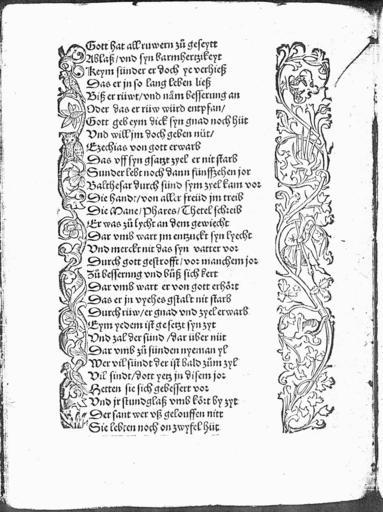 Gott hat all ruwern zů geseytt
Ablaß/vnd syn barmhertzikeyt
Keym sünder er doch ye verhieß
Das er jn so lang leben ließ
Biß er rüwt/vnd näm besserung an
Oder das er rüw würd entpfan/
Gott geb eym dick syn gnad noch hüt
Vnd will jm doch geben nüt/
Ezechias von gott erwarb
Das vff syn gsatzt zyel er nit starb
Sunder lebt noch dann fünffzehen jor
Balthesar durch sünd sym zyel kam vor
Die handt/von aller freüd jm treib
Die Mane/Phares/Thetel schreib
Er was zů lycht an dem gewiecht
Dar vmb wart jm entzuckt syn lyecht
Vnd merckt nit das syn vatter vor
Durch gott gestrofft/vor manchem jor
Zů besserung vnd bůß sich kert
Dar vmb wart er von gott erhört
Das er in vyehes gstalt nit starb
Durch rüw/er gnad vnd zyel erwarb
Eym yedem ist gesetzt syn zyt
Vnd zal der sünd/dar über nüt
Dar vmb zů sünden nyeman yl
Wer vil sündt der ist bald zům zyl
Vil sindt/dott yetz in disem jor
Hetten sie sich gebessert vor
Vnd jr stundglaß vmb kört by zyt
Der sant wer vß gelouffen nitt
Sie lebten noch on zwyfel hüt